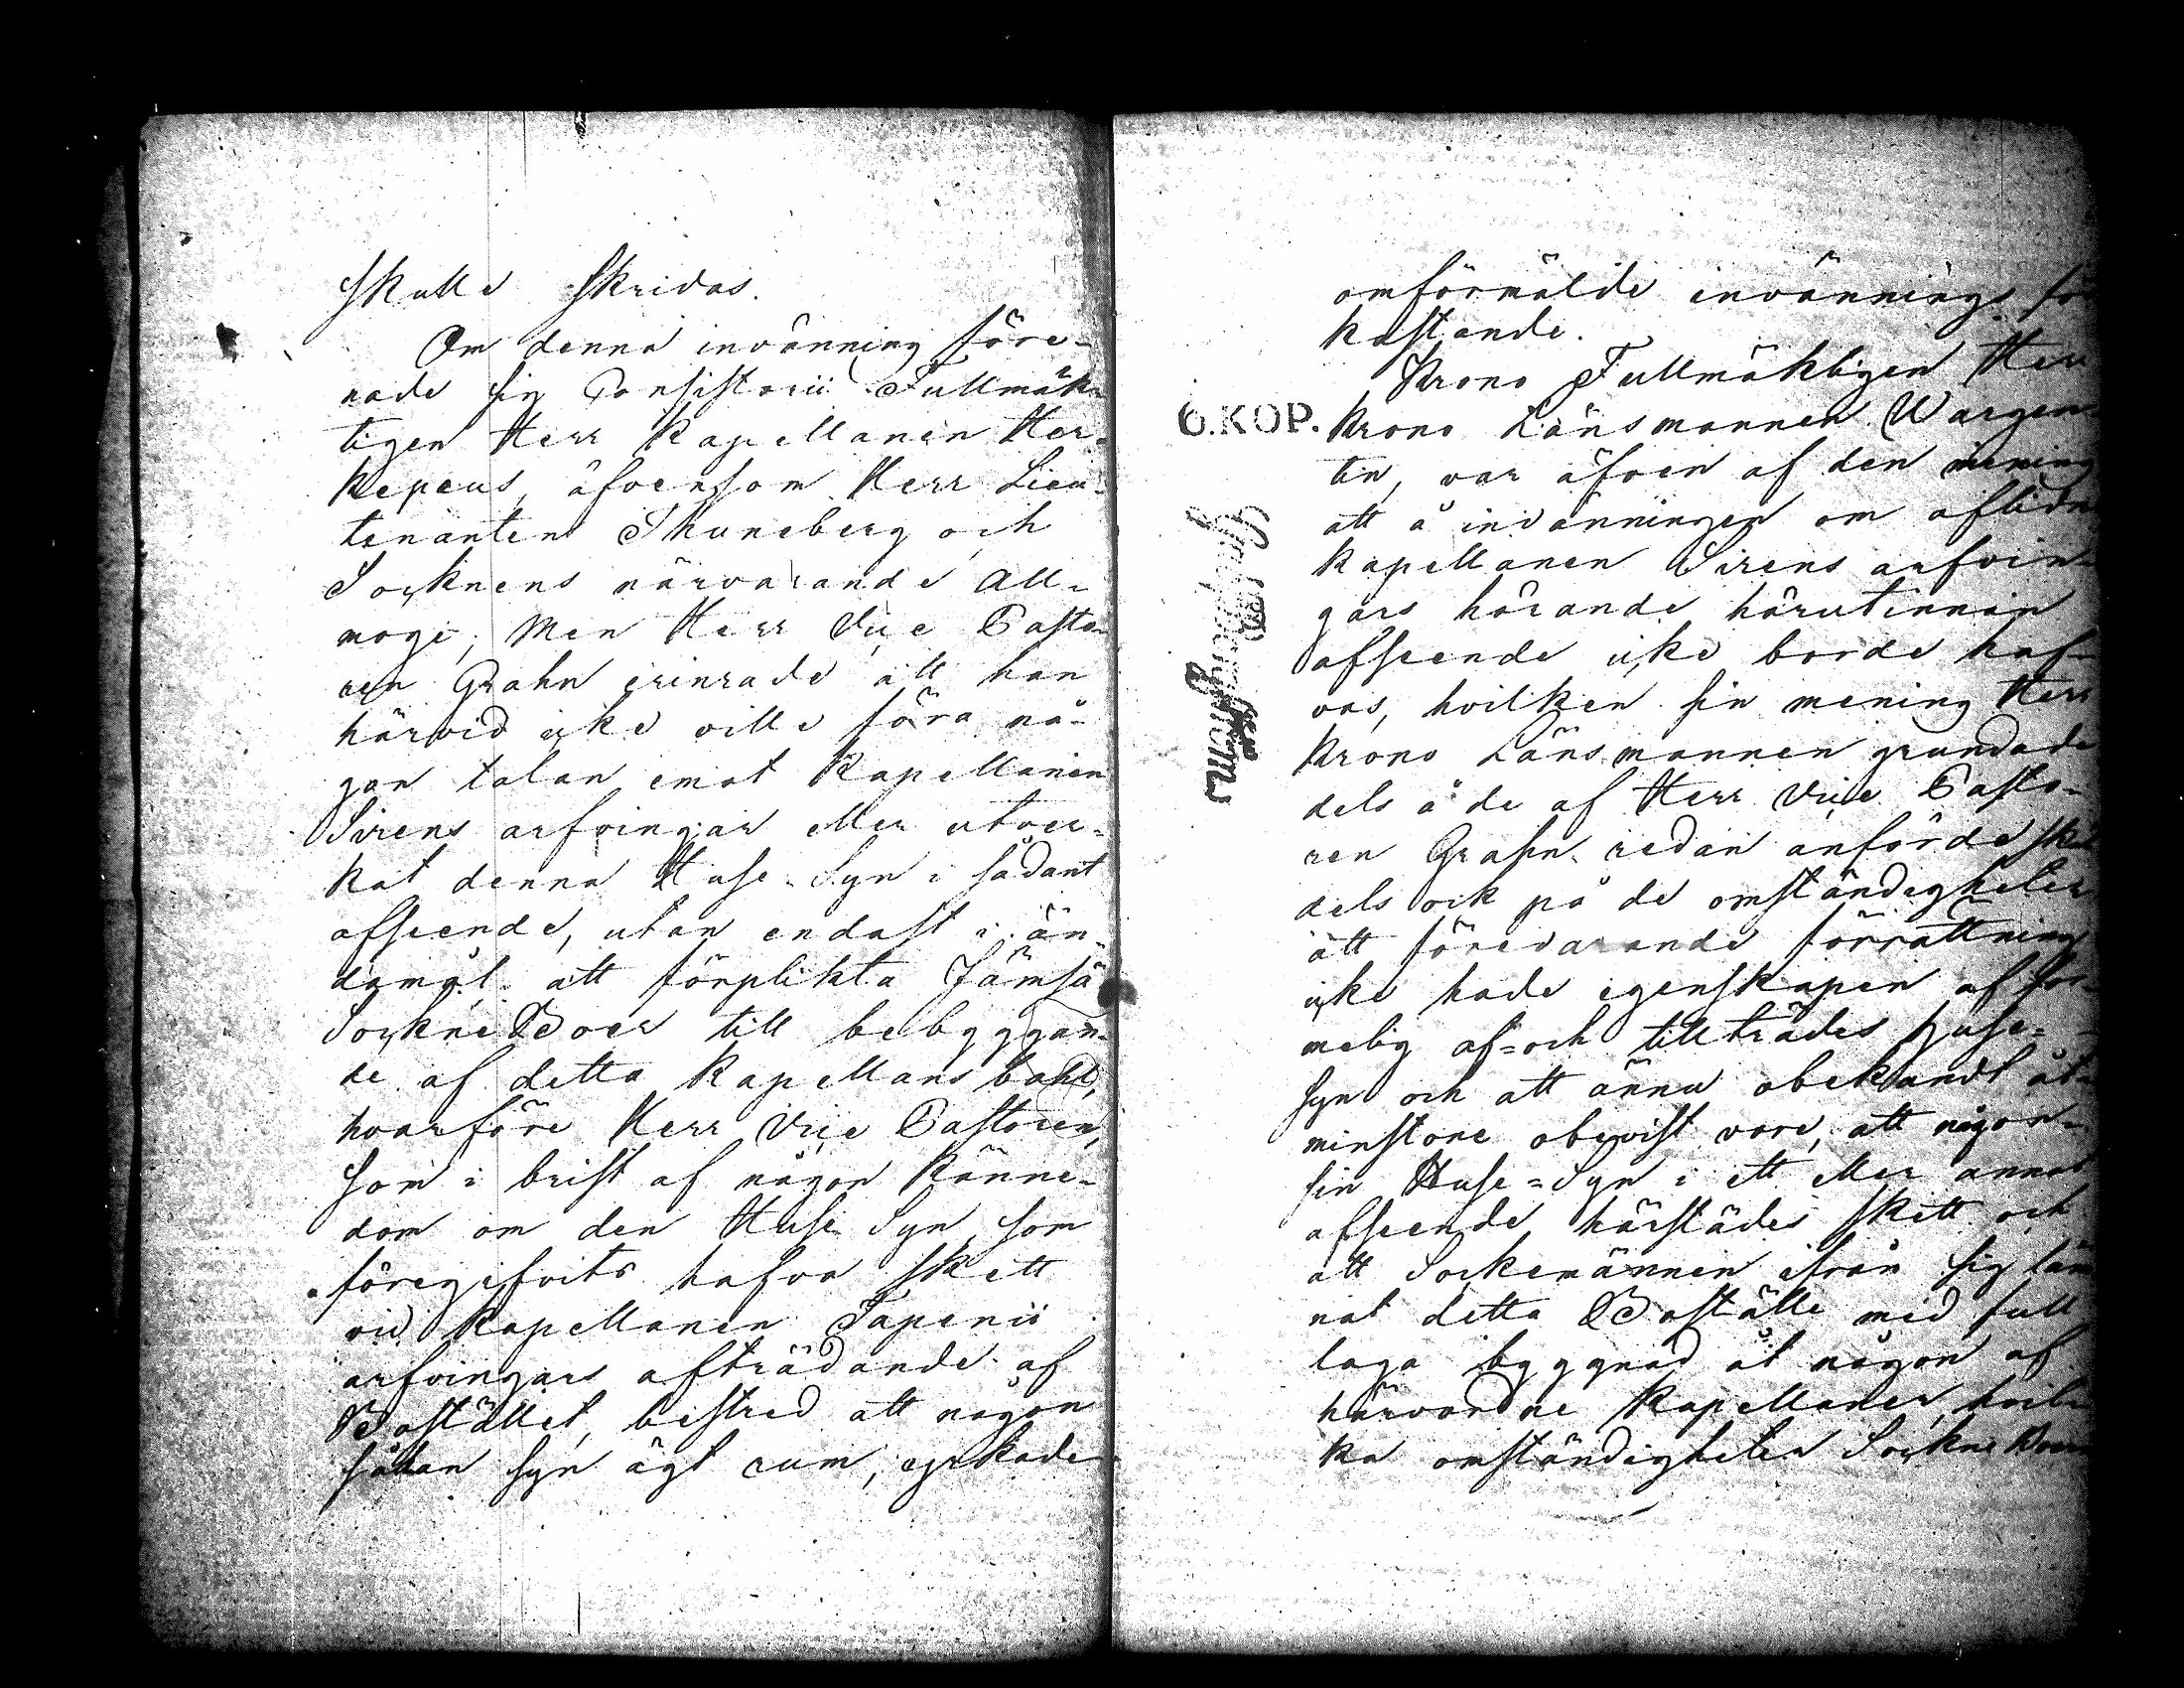 skulle skridas.
Om denna invänning före-
nade sig Consistorii Fullmäk-
tigen Herr Kapellanen Her-
kepeus, äfvensom Herr Lieu-
tenanten Thuneberg och
Socknens närvarande All-
moge; Men Herr Vice Pasto-
ren Grahn erinrade att han
härvid icke ville föra nå-
gon talan emot Kapellanen
Sirens arfvingar eller utver-
kat denna Huse-Syn i sådant
afseende, utan endast i än-
damål att förplikta Jämsä
Sockne Boer till bebyggan-
de af detta Kapellans bohl,
hvarföre Herr Vice Pastoren,
som i brist af någon känne-
dom om den Huse Syn, som
föregifvits hafva skett
vid Kapellanen Tapenii
arfvingars afträdande af
Bostället, bestred att någon
sådan syn ägt rum, yrkade
omförmälde invännings för
kastande.
Krono Fullmäktigen Herr
6.KOP.
Krono Länsmannen Wargen-
tin, var äfven af den mening
att å invänningen om aflidne
Kapellanen Sirens arfvin-
gars hörande härutinnan
afseende icke borde haf-
vas, hvilken sin mening Herr
Krono Länsmannen grundade
dels å de af Herr Vice Pasto-
ren Grahn redan anförde skäl
dels ock på de omständigheter
att förevarande förrättning
icke hade egenskapen af for-
melig af- och tillträdes huse-
syn och att ännu obekandt åt-
minstone obevist vore, att någon-
sin Huse-Syn i ett eller annat
afseende härstädes skett och
att Sockemännen ifrån sig läm
nat detta Boställe med full
laga byggnad åt någon af
härvordne Kapellaner, hvil-
ka omständigheter Sockne Boer